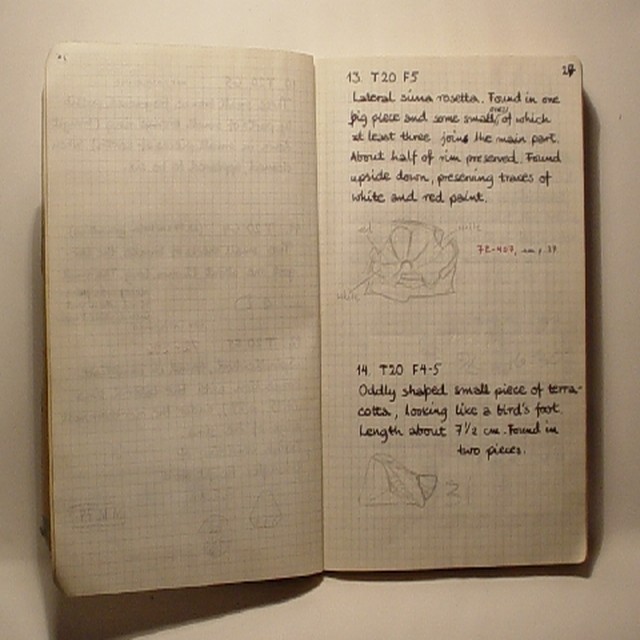 27
13. T20 F5
Lateral sima rosetta. Found in one
big piece and some small, ones of which
at least three joins the main part.
About half of rim preserved. Found
upside down, preserving traces of
white and red paint.
red
white
72-407,
white
14. T20 F4-5
Oddly shaped small piece of terra-
cotta, looking like a bird's foot.
Length about 7½ cm. Found in
two pieces.